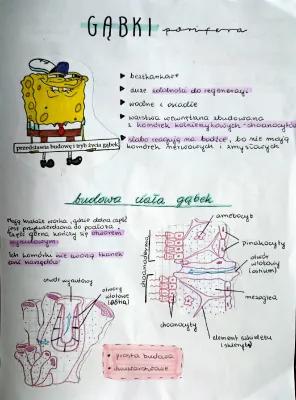 GĄBKI porifera
beztkankowe
duże zdolności do regeneracji
wodne i osiadłe
warstwa wewnętrzna zbudowana
z komórek kołnierzykowych-choanocytów
słabo reagują na bodźce, bo nie mają
komórek nerwowych i zmysłowych
przedstawia budowę i tryb życia gąbek
budowa ciała gąbek
Mają kształt worka, gdzie dolna część
jest przytwierdzona do podłoża
część górna kończy się otworem
wyrzutowym
Ich komórki nie tworzą tkanek
ani narządów
otwór wyrzutowy
otwory
wlotowe
(ostia)
choanoderma
amebocyt
pinakocyty
otwór
wlotowy
(ostium)
mezoglea
choanocyty
element szkieletu
(skleryt)
prosta budowa
dwuwarstwowe